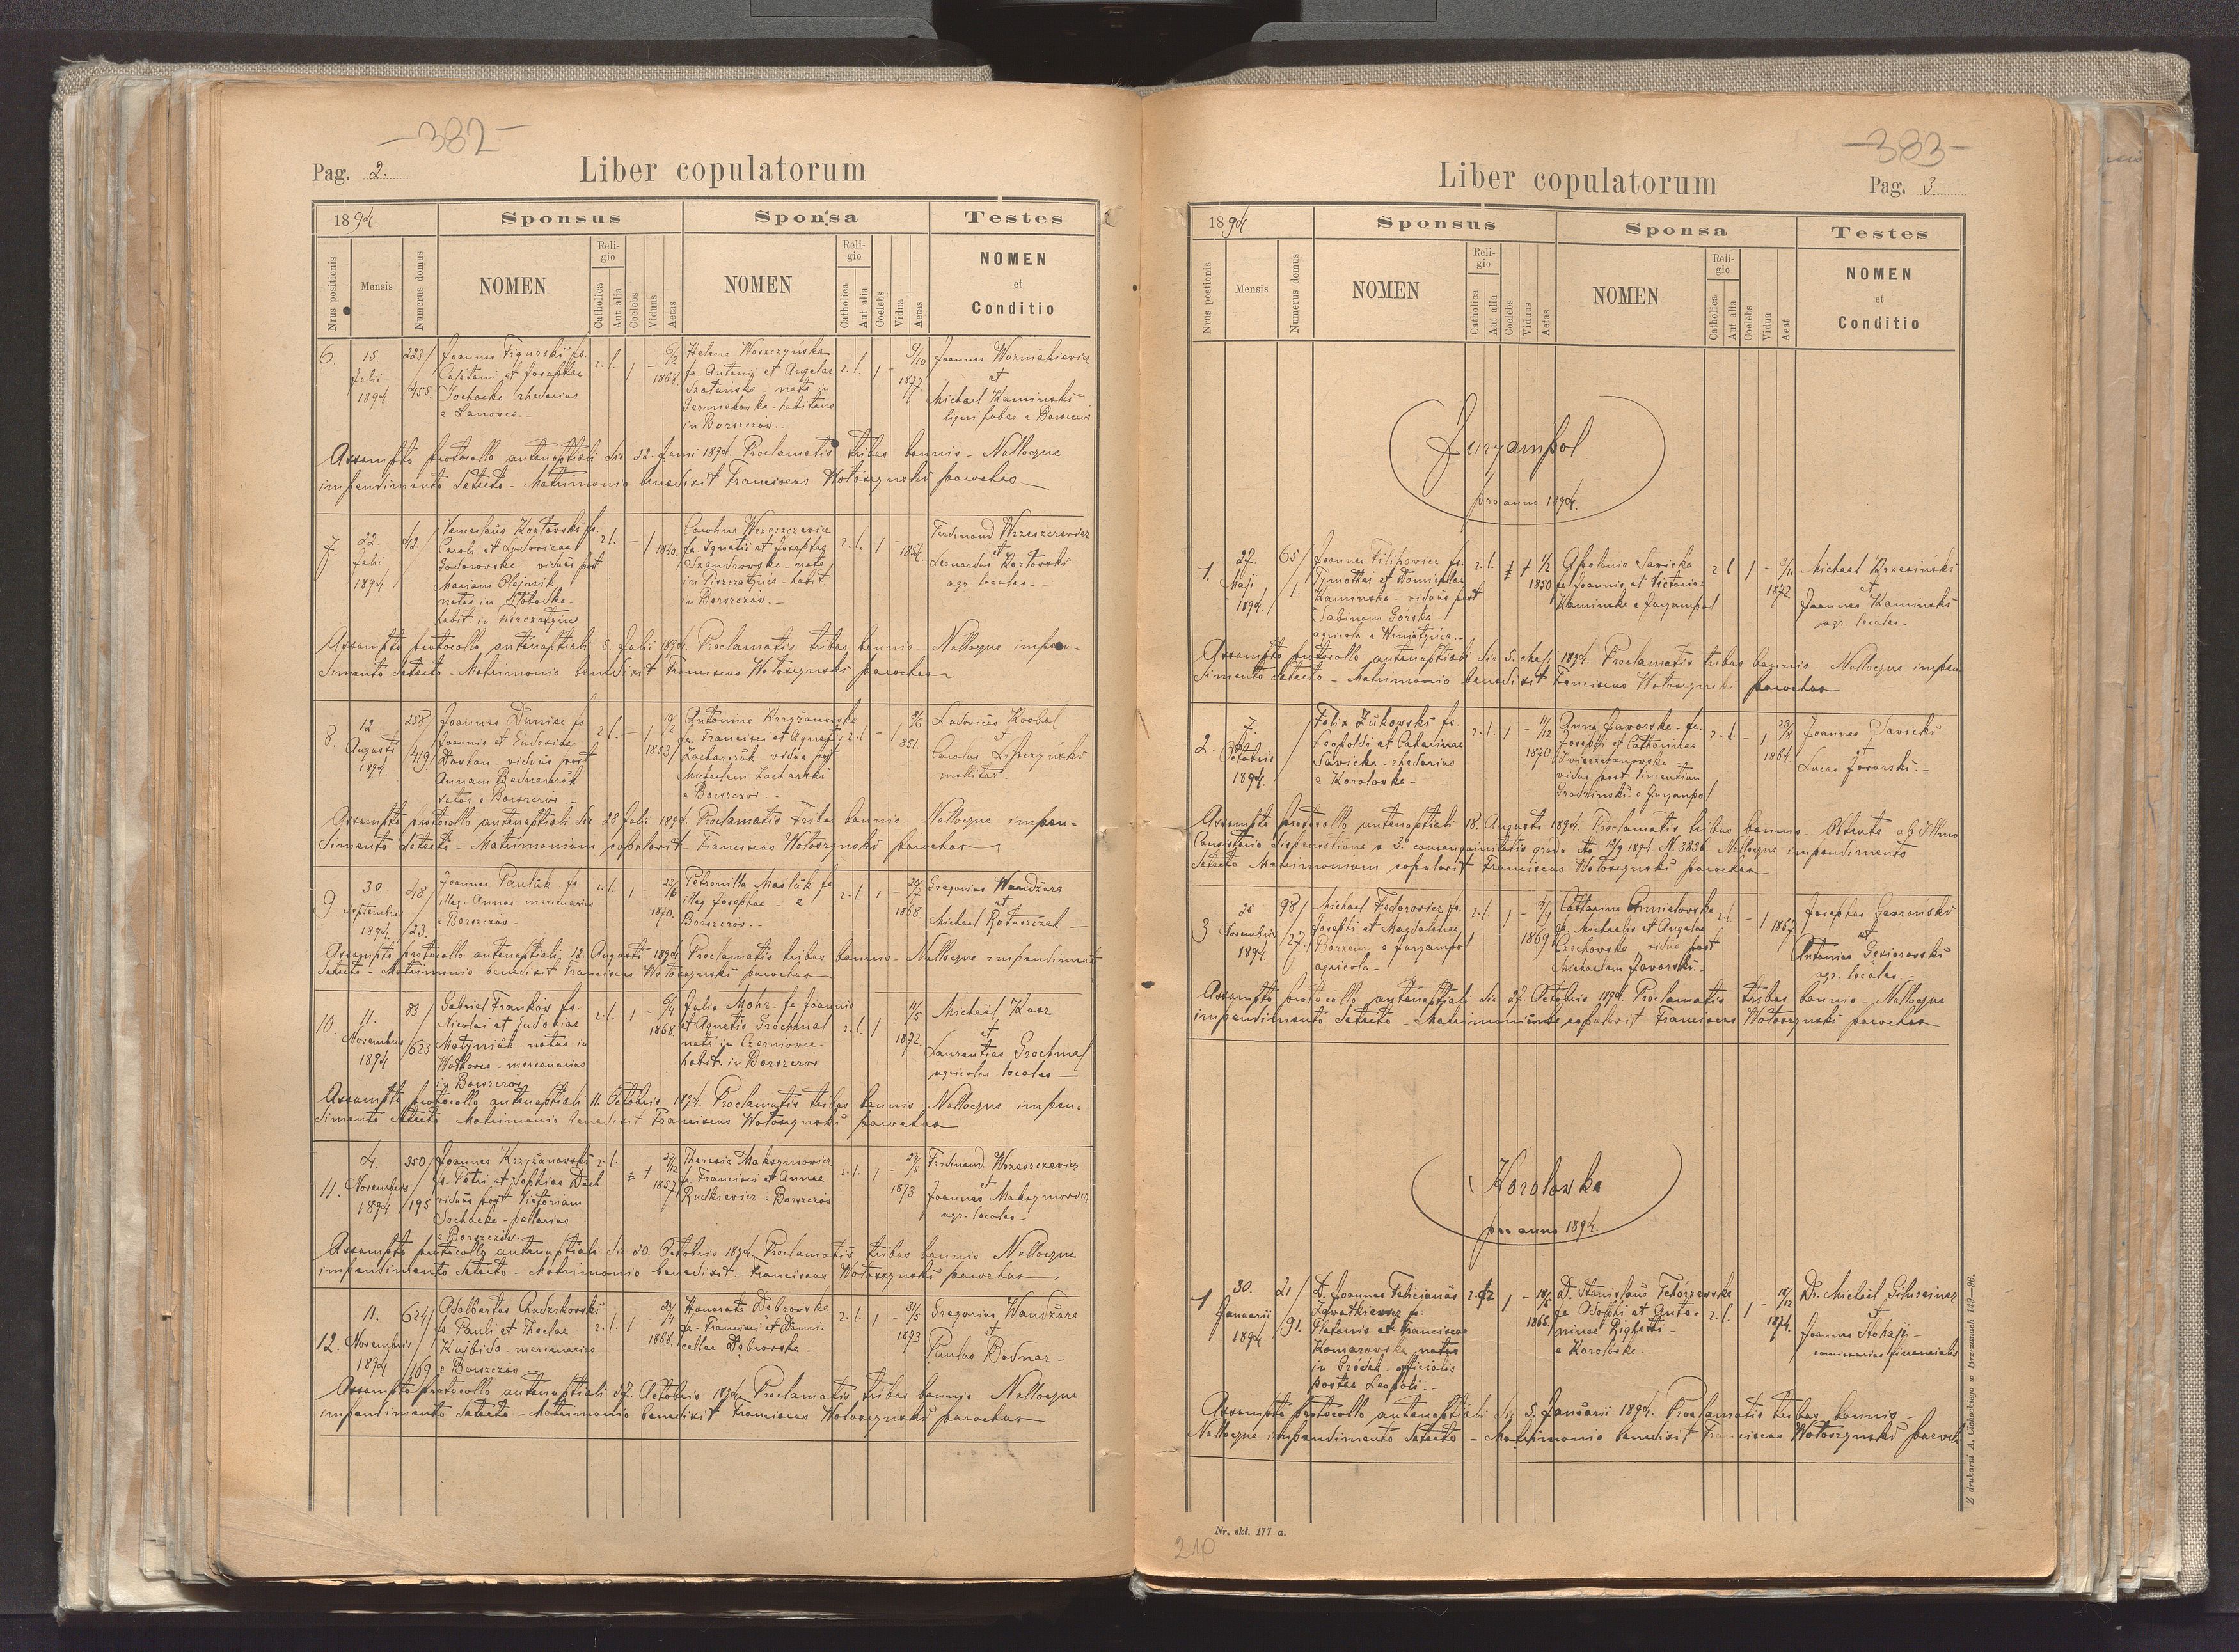 -382-
Pag. 2.
Liber copulatorum
1894.
Sponsus
Sponsa
Testes
Nrus positionis
Mensis
Numerus domus
NOMEN
Religio
Catholica
Aut alia
Coelebs
Viduus
Aetas
NOMEN
Religio
Catholica
Aut alia
Coelebs
Vidua
Aetas
NOMEN
et
Conditio
6. 15. Julii 1894. 223/455.
Joannes Figurski fs.
Cajetani et Josephae
Sochacka rhedarius
e Lanowce.-
r. l. 1 - 6/2 1868
Helena Woszczyńska
fa. Antonii et Angelae
nata in
Germakowka - habitans
in Borszczów.-
r. l. 1 - 9/10 1877.
Joannes Wozniakiewicz
et
Michael Kaminski
e Borszczów
Assumpto protocollo antenuptiali die 22. Juni 1894. Proclamatis tribus bannis - Nulloque
impendimento detecto - Matrimonio benedixit Franciscus Wołoszynski parochus
7. 22. Julii 1894 42.
Venceslaus Kozłowski fs.
Caroli et Ludovicae
Godorowska - viduus post
Mariam Olejnik
natus in
habit. in Piszczatyńce
r. l. - 1 1840.
Carolina Wrzeszczewicz
fa. Ignatii et Josephae
Szandrowska - nata
in Piszczatyńce - habit.
in Borszczów.-
r. l. 1 - 1854.
Ferdinand Wrzeszczewicz
et
Leonardus Kozłowski
agr. locales.-
Assumpto protocollo antenuptiali 5. Julii 1894. Proclamatis tribus bannis - Nulloque impen-
dimento detecto - Matrimonio benedixit Franciscus Wołoszynski parochus
8. 12 Augusti 1894. 258/419
Joannes Dunisc fs
Joannis et Eudosiae
Dovhan - viduus post
Annam Bednarczuk
sutor e Borszczów.-
r. l. - 1 1853
Antonina Krzyżanowska
fa. Francisci et Agnetis
Zacharczuk - vidua post
Michaelem Zacharski
e Borszczów.-
r. l. - 1 9/6 1851.
Ludovicus Wrobel
et
Carolus Lipczyński
Assumpto protocollo antenuptiali die 28 Julii 1894. Proclamatis tribus bannis - Nulloque impen-
dimento detecto - Matrimonium copulavit - Franciscus Wołoszynski parochus
9. 30. Septembris 1894 48/23.
Joannes Pauluk fs
illeg. Annae mercenarius
e Borszczów -
r. l. 1 - 23/6 1870.
Petronilla Masluk fa
illeg Josephae - e
Borszczów.-
r. l. 1 - 1868.
Gregorius Wandżura
et
Michael Ratuszczak -
Assumpto protocollo antenuptiali 12. Augusti 1894. Proclamatis tribus bannis - Nulloque impendimento
detecto - Matrimonio benedixit Franciscus Wołoszynski parochus
10. 11. Novembris 1894 83/623
Gabriel Franków fs.
Nicolai et Eudokiae
Matyniuk - natus in
Wołkowce - mercenarius
in Borszczów
r. l. 1 - 6/4 1868
Julia Mohr - fa Joannis
et Agnetis Grochmal
nata in Czerniowce -
habit. in Borszczów
r. l. 1 - 14/5 1872.
Michaël Kusz
et
Laurentius Grochmal
agricolae locales -
Assumpto protocollo antenuptiali 11. Octobris 1894. Proclamatis tribus bannis - Nulloque impen-
dimento detecto - Matrimonio benedixit Franciscus Wołoszynski parochus
11. 4. Novembris 1894 350/195
Joannes Krzyżanowski
fs. Petri et Sophiae Duch
viduus post Victoriam
Sochacka - pallarius
e Borszczów
r. l. 1 27/12 1857
Theresia Maksymowicz
fa. Francisci et Annae
Rudkiewicz e Borszczów
r. l. 1 - 27/5 1873.
Ferdinand Wrzeszczewicz
et
Joannes Maksymowicz
agr. locales -
Assumpto protocollo antenuptiali die 20. Octobris 1894. Proclamatis tribus bannis - Nulloque
impendimento detecto - Matrimonio benedixit Franciscus Wołoszynski parochus
12. 11. Novembris 1894 624/169
Adalbertus Chudzikowski
fs. Pauli et Theclae
Kujbida - mercenarius
e Borszczów
r. l. 1 - 23/4 1868.
Honorata Dąbrowska
fa. Francisci et Domi-
cellae Dąbrowska -
r. l. 1 - 31/5 1873
Gregorius Wandżura
et
Paulus Bodnar -
Assumpto protocollo antenuptiali 27. Octobris 1894. Proclamatis tribus bannis - Nulloque
impendimento detecto - Matrimonio benedixit Franciscus Wołoszynski parochus
-383-
Liber copulatorum
Pag. 3
1894.
Sponsus
Sponsa
Testes
Nrus postionis
Mensis
Numerus domus
NOMEN
Religio
Catholica
Aut alia
Coelebs
Viduus
Aetas
NOMEN
Religio
Catholica
Aut alia
Coelebs
Vidua
Aeat
NOMEN
et
Conditio
Juryampol
pro anno 1894.
1. 27. Maji 1894. 65/1.
Joannes Filipowicz fs.
Tymothei et Domicellae
Kaminska - viduus post
Sabinam Górska
agricola e Winiatyńce.-
r. l. 1 1/2 1850
Apolonia Sawicka
fa Joannis et Victoriae
Kaminska e Juryampol
r. l 1 - 3/11 1872.
Michael Krzesiński
et
Joannes Kaminski
agr. locales -
Assumpto protocollo antenuptiali die 5. Maji 1894. Proclamatis tribus bannis - Nulloque impen
dimento detecto - Matrimonio benedixit Franciscus Wołoszynski parochus
2. 7. Octobris 1894.
Felix Żukowski fs.
Leopoldi et Catharinae
Sawicka - rhedarius
e Korolowka -
r. l. 1 - 11/12 1870
Anna Jaworska - fa.
Josephi et Catharinae
Zwierzchanowska -
vidua post Vincentium
Grodzinski e Juryampol
r. l. - 1 23/8 1864.
Joannes Sawicki
et
Lucas Jaworski.-
Assumpto protocollo antenuptiali 18. Augusti 1894. Proclamatis tribus bannis - Obtenta ab Illmo
Consistorio dispensatione a 3º consanguinitatis gradu dto 12/9 1894. N. 3836 Nulloque impendimento
detecto Matrimonium copulavit Franciscus Wołoszynski parochus
3 25 Novembris 1894. 98/27.
Michael Fedorowicz fs.
Josephi et Magdalenae
e Juryampol
agricola -
r. l. 1 - 2/9 1869
Catharina Chmielowska
fa. Michaelis et Angelae
Czechowska - vidua post
Michaelem Jaworski.-
r. l. - 1 1867
Josephus
et
Antonius Gesiorowski
agr. locales.-
Assumpto protocollo antenuptiali die 27. Octobris 1894. Proclamatis tribus bannis - Nulloque
impendimento detecto - Matrimonium copulavit Franciscus Wołoszynski parochus
Korolowka
pro anno 1894.
1 30. Januarii 1894 21/91.
D. Joannes Felicianus
fs.
Platonis et Franciscae
Komarowska natus
in Gródek - officialis
postae Leopoli.-
1 - 18/5 1868.
D. Stanislaus Tchórzewska
fa Adolphi et Anto-
ninae Righetti -
e Korolówka.-
r. l. 1 - 18/12 1874.
Dr. Michael
et
Joannes
comissarius financialis
Assumpto protocollo antenuptiali die 5. Januarii 1894. Proclamatis tribus bannis -
Nulloque impendimento detecto - Matrimonio benedixit Franciscus Wołoszynski paroch
Z drukarni A. Cichockiego w Brzeżanach 149—96.
Nr. skł. 177 a.
210